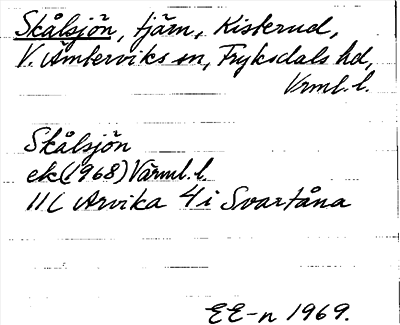 Skålsjön, tjärn, Kisterud,
V. Ämterviks sn, Fryksdals hd,
Vrml.l.
Skålsjön
ek(1968) Värml.l.
11C Arvika 4i Svartåna
EE-n 1969.